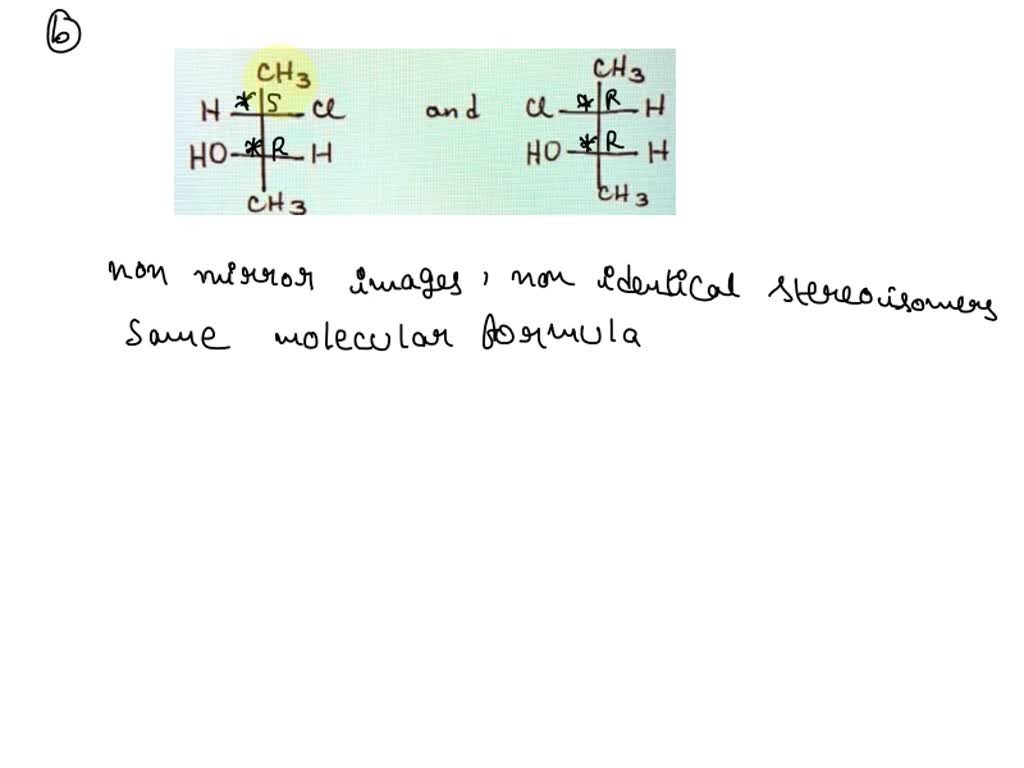 b
CH3 CH3
H * S Cl and Cl * R H
HO * R H HO * R H
CH3 CH3
non mirror images, non identical stereoisomers
Same molecular formula